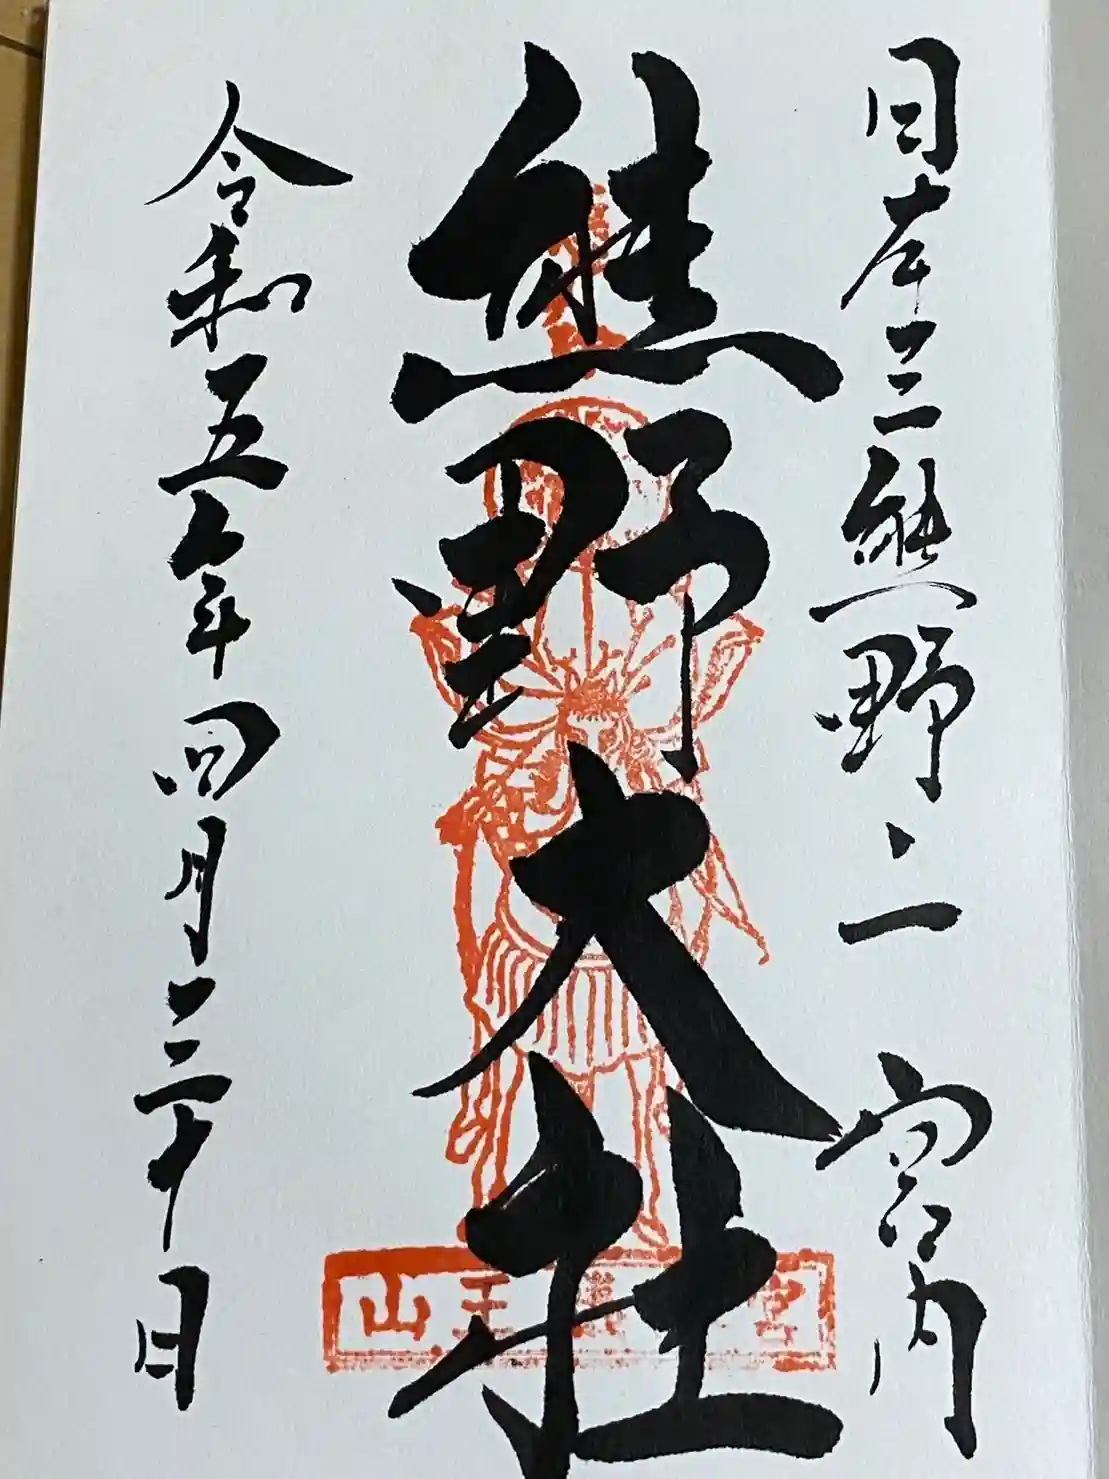 日本三熊野之一 宮内
熊野大社
令和五年四月二十日
山王
宮